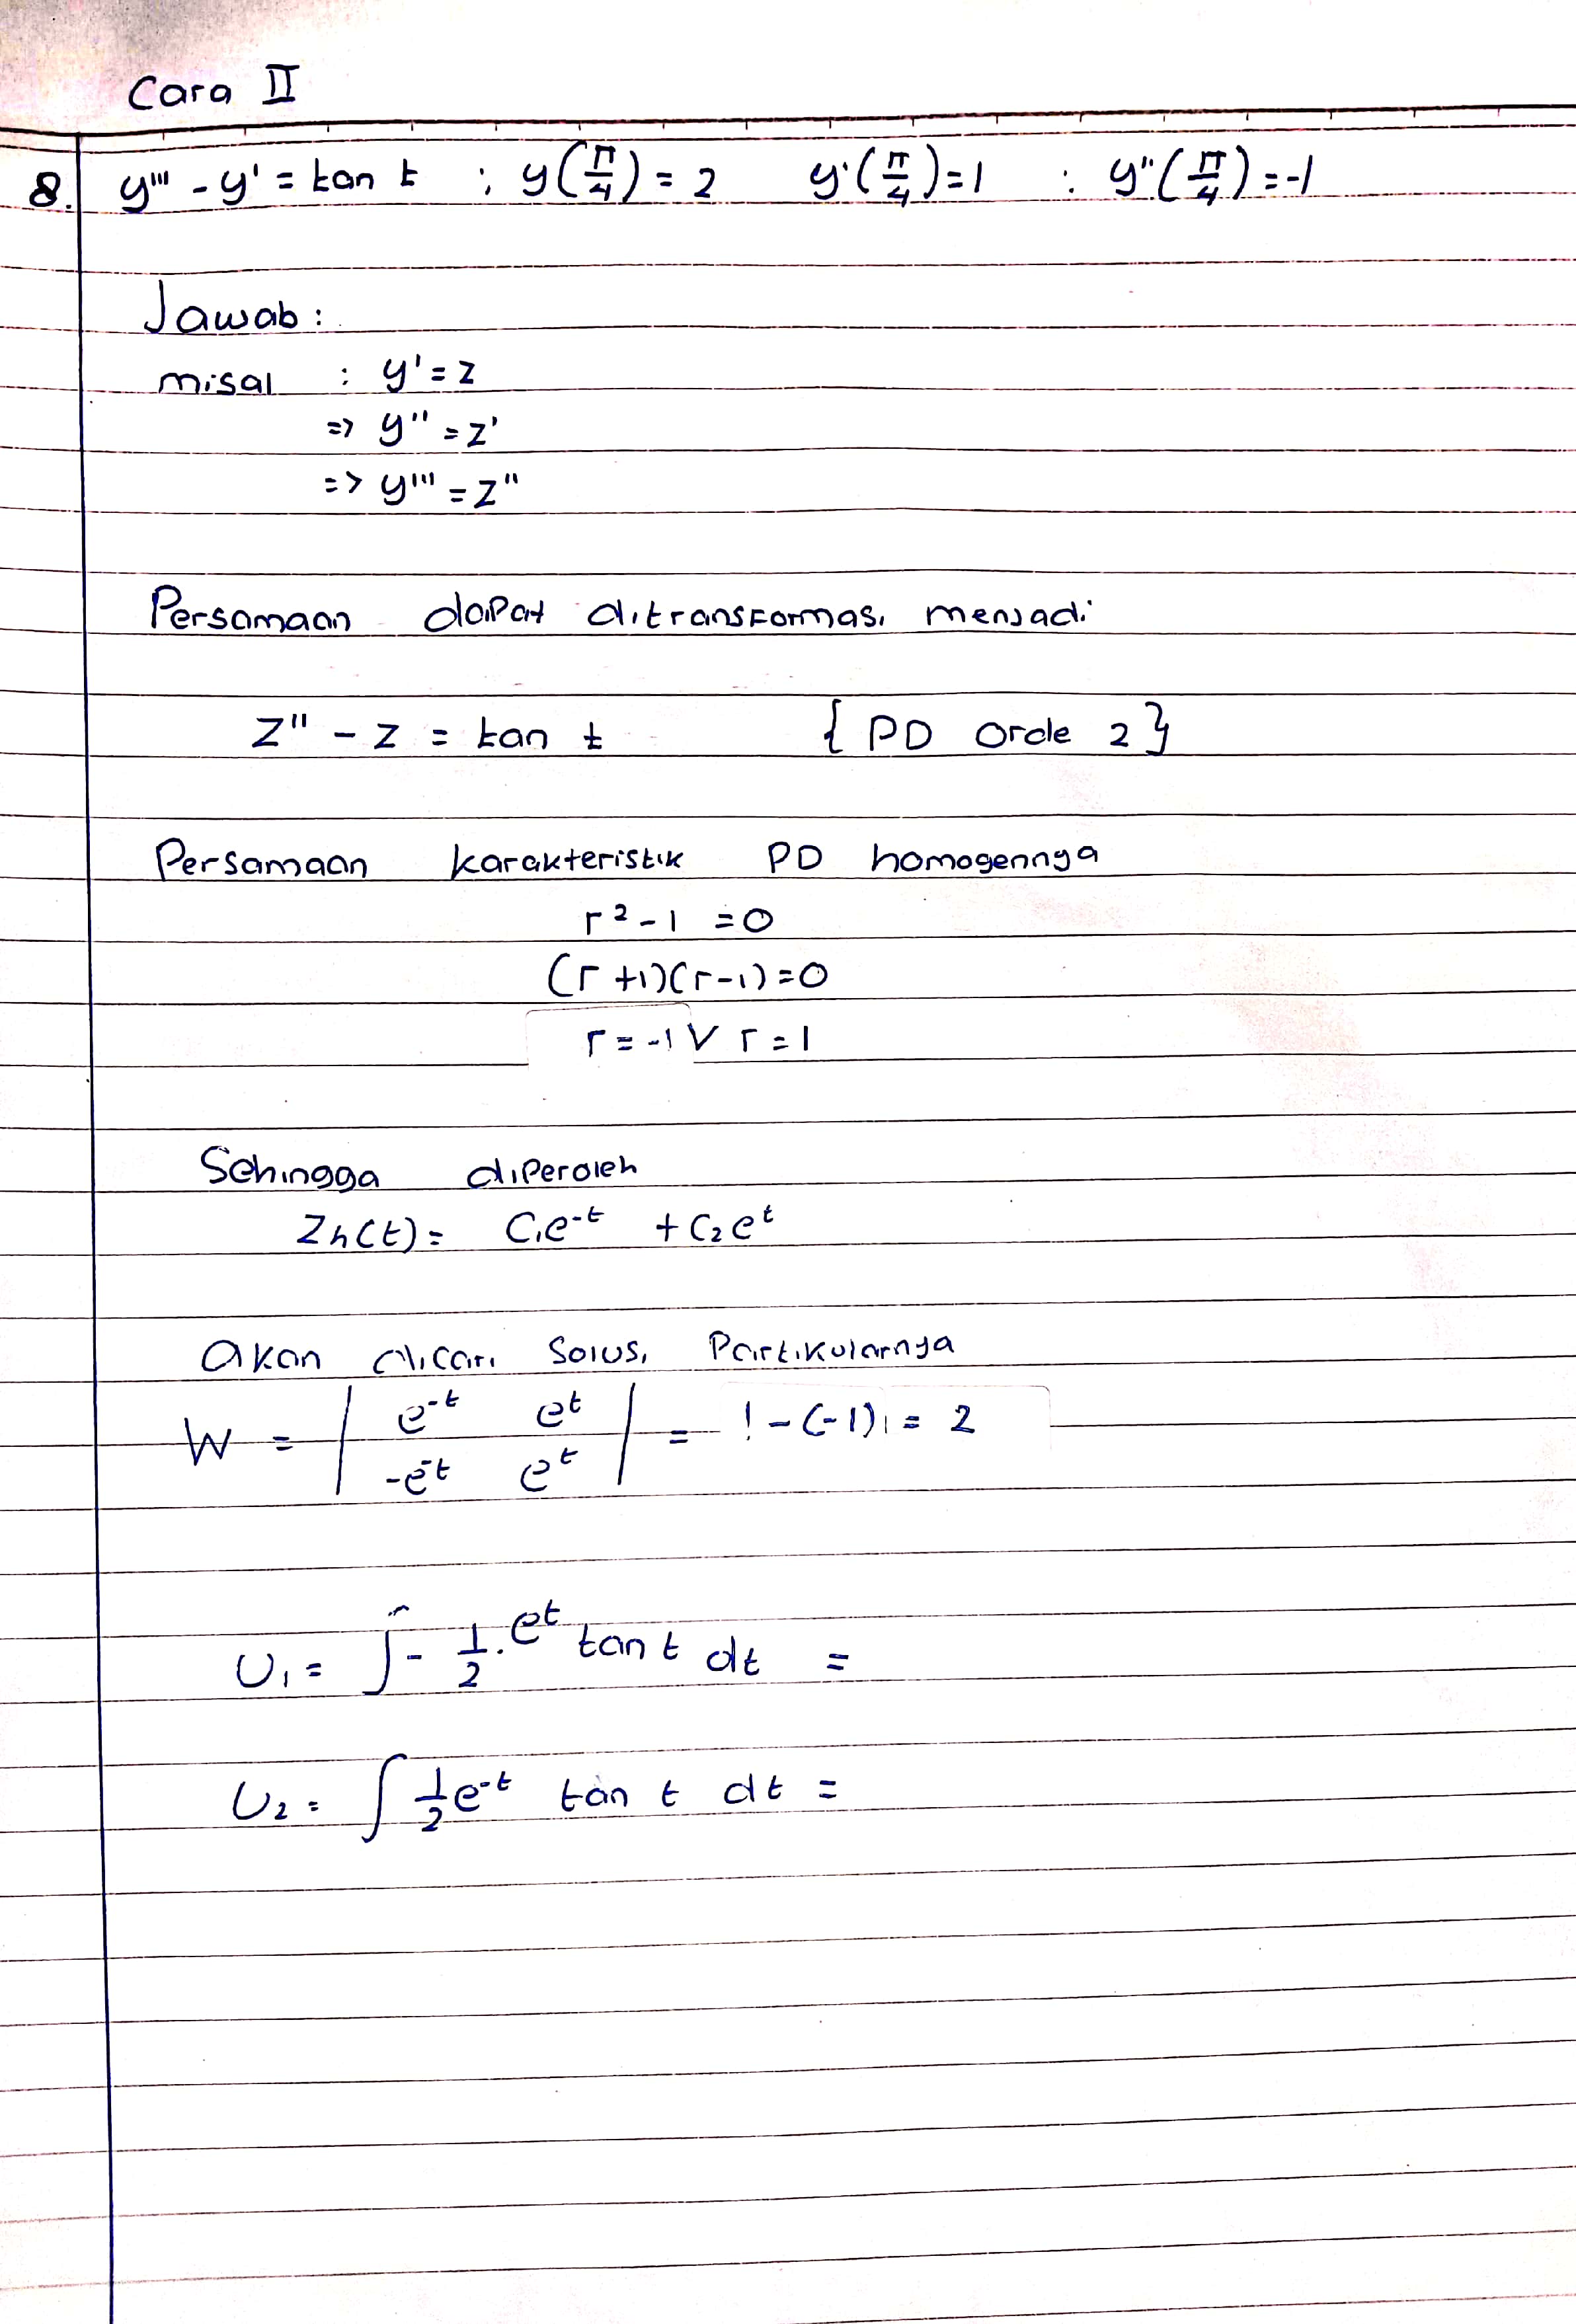 Cara II
8. y''' - y' = tan t ; y(π/4) = 2 y'(π/4) = 1 ; y''(π/4) = -1
Jawab :
misal : y' = z
=> y'' = z'
=> y''' = z''
Persamaan dapat ditransformasi menjadi
z'' - z = tan t { PD Orde 2 }
Persamaan karakteristik PD homogennya
r² - 1 = 0
(r + 1)(r - 1) = 0
r = -1 V r = 1
Sehingga diperoleh
Zh(t) = C₁e^-t + C₂e^t
Akan dicari Solusi Partikularnya
W = | e^-t e^t | = 1 - (-1) = 2
| -e^-t e^t |
U₁ = ∫ - 1/2 . e^t tan t dt =
U₂ = ∫ 1/2 e^-t tan t dt =